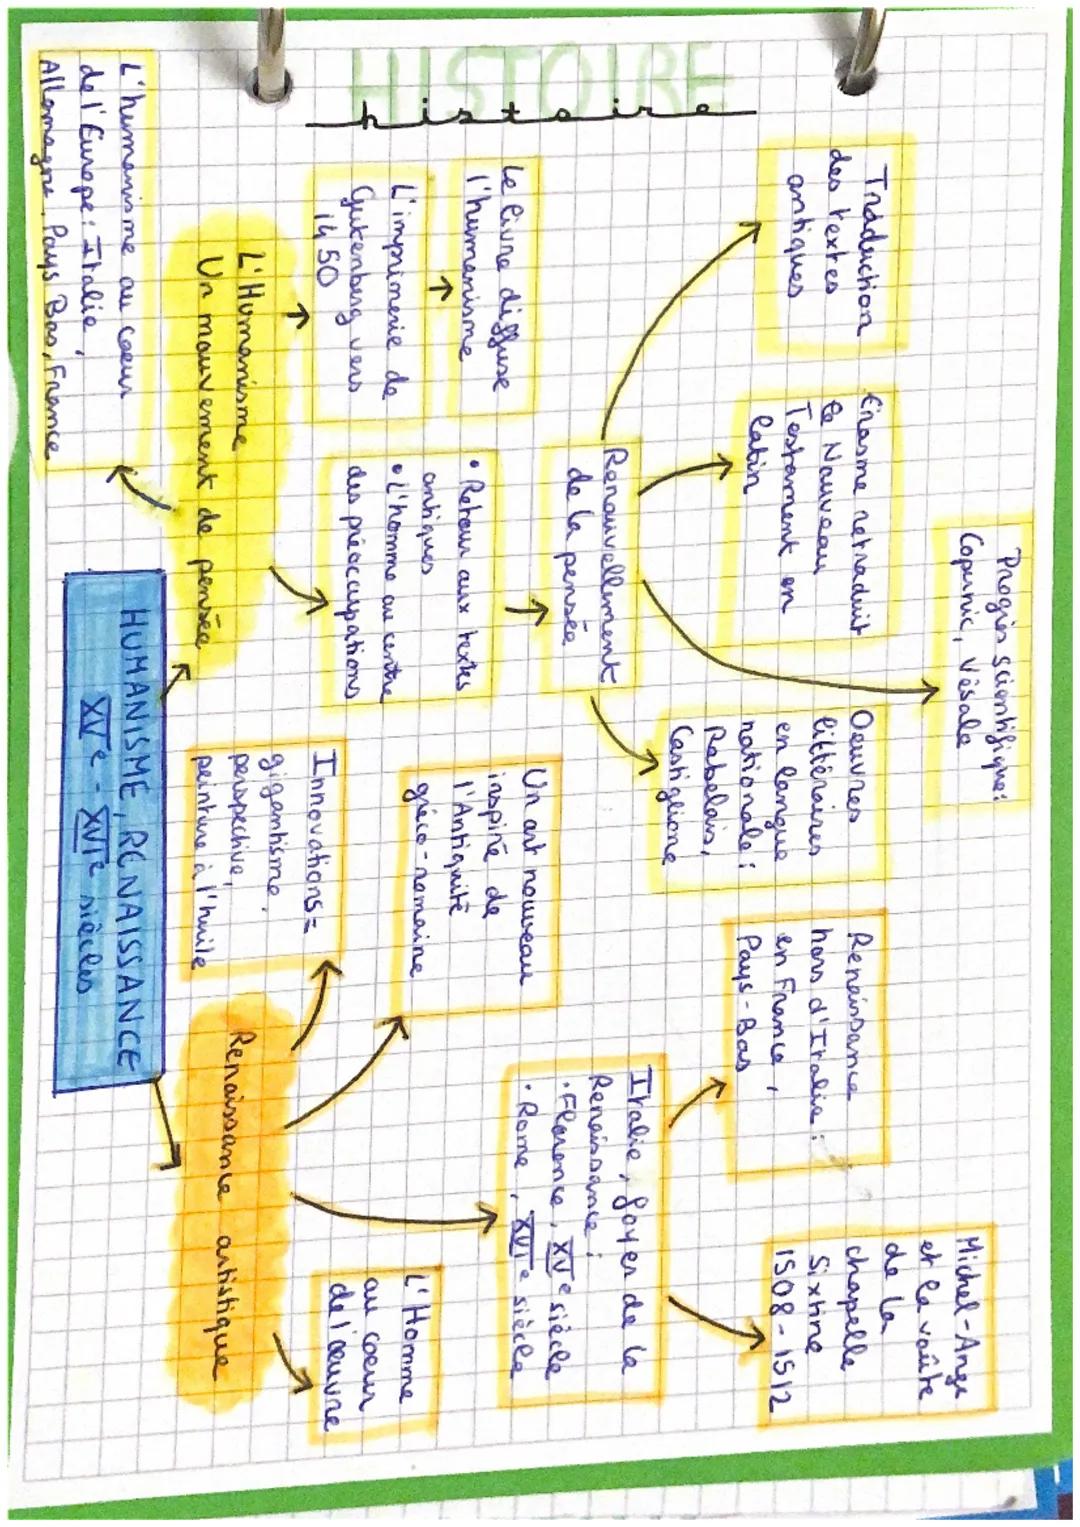 HISTOIRE
histoire
Progrès scientifique:
Copernic, Vésale
Traduction
des textes
antiques
Erasme retraduit
le Nouveau
Testament en
latin
Oeuvres
littéraires
en langue
nationale:
Rabelais,
Castiglione
Renouvellement
de la pensée
Le livre diffuse
l'humanisme
L'imprimerie de
Gutenberg vers
1450
• Retour aux textes
antiques
• L'homme au centre
des préoccupations
L'Humanisme
Un mouvement de pensée
L'humanisme au coeur
de l'Europe: Italie,
Allemagne, Pays Bas, France
HUMANISME, RENAISSANCE
XVe - XVIe siècles
Michel-Ange
et la voûte
de la
chapelle
Sixtine
1508-1512
Renaissance
hors d'Italie:
en France,
Pays-Bas
Italie, foyer de la
Renaissance:
• Florence, XVe siècle
• Rome, XVIe siècle
Un art nouveau
inspiré de
l'Antiquité
gréco-romaine
Innovations=
gigantisme,
perspective,
peinture à l'huile
L'Homme
au coeur
de l'œuvre
Renaissance artistique